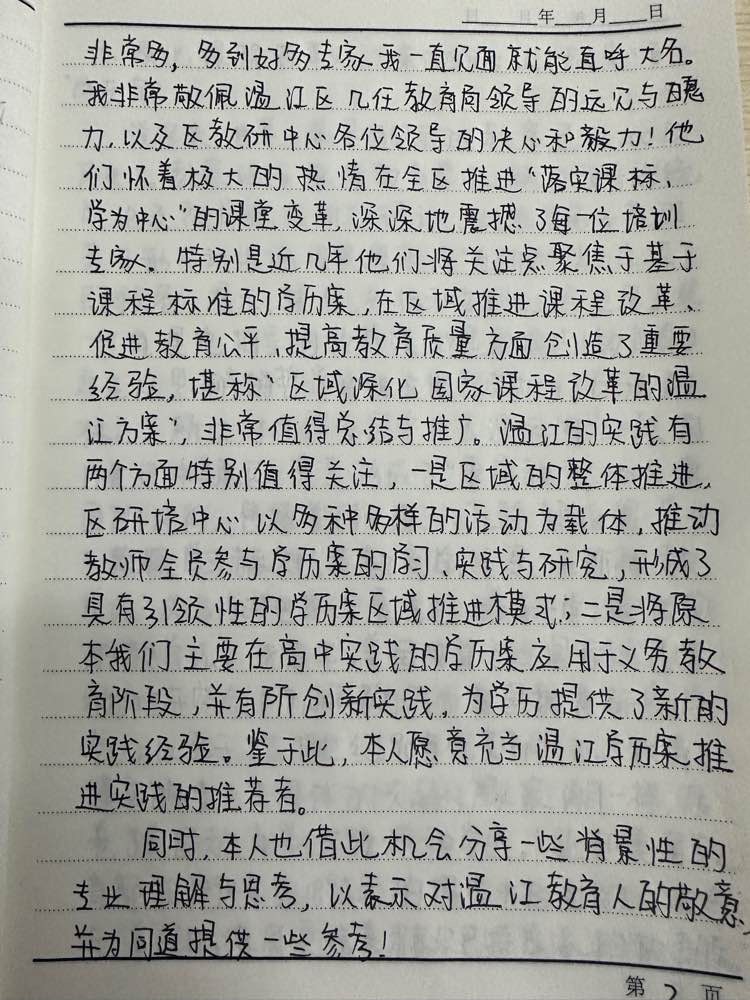 年 月 日
非常多，多到好多专家我一直见面就能直呼大名。
我非常敬佩温江区几任教育局领导的远见与魄
力，以及区教研中心各位领导的决心和毅力！他
们怀着极大的热情在全区推进“落实课标、
学为中心”的课堂变革，深深地震撼了每一位培训
专家。特别是近几年他们将关注点聚焦于基于
课程标准的学历案，在区域推进课程改革、
促进教育公平、提高教育质量方面创造了重要
经验，堪称“区域深化国家课程改革的温
江方案”，非常值得总结与推广。温江的实践有
两个方面特别值得关注，一是区域的整体推进，
区研培中心以多种多样的活动为载体，推动
教师全员参与学历案的学习、实践与研究，形成了
具有引领性的学历案区域推进模式；二是将原
本我们主要在高中实践的学历案应用于义务教
育阶段，并有所创新实践，为学历提供了新的
实践经验。鉴于此，本人愿意充当温江学历案推
进实践的推荐者。
同时，本人也借此机会分享一些背景性的
专业理解与思考，以表示对温江教育人的敬意，
并为同道提供一些参考！
第 2 页